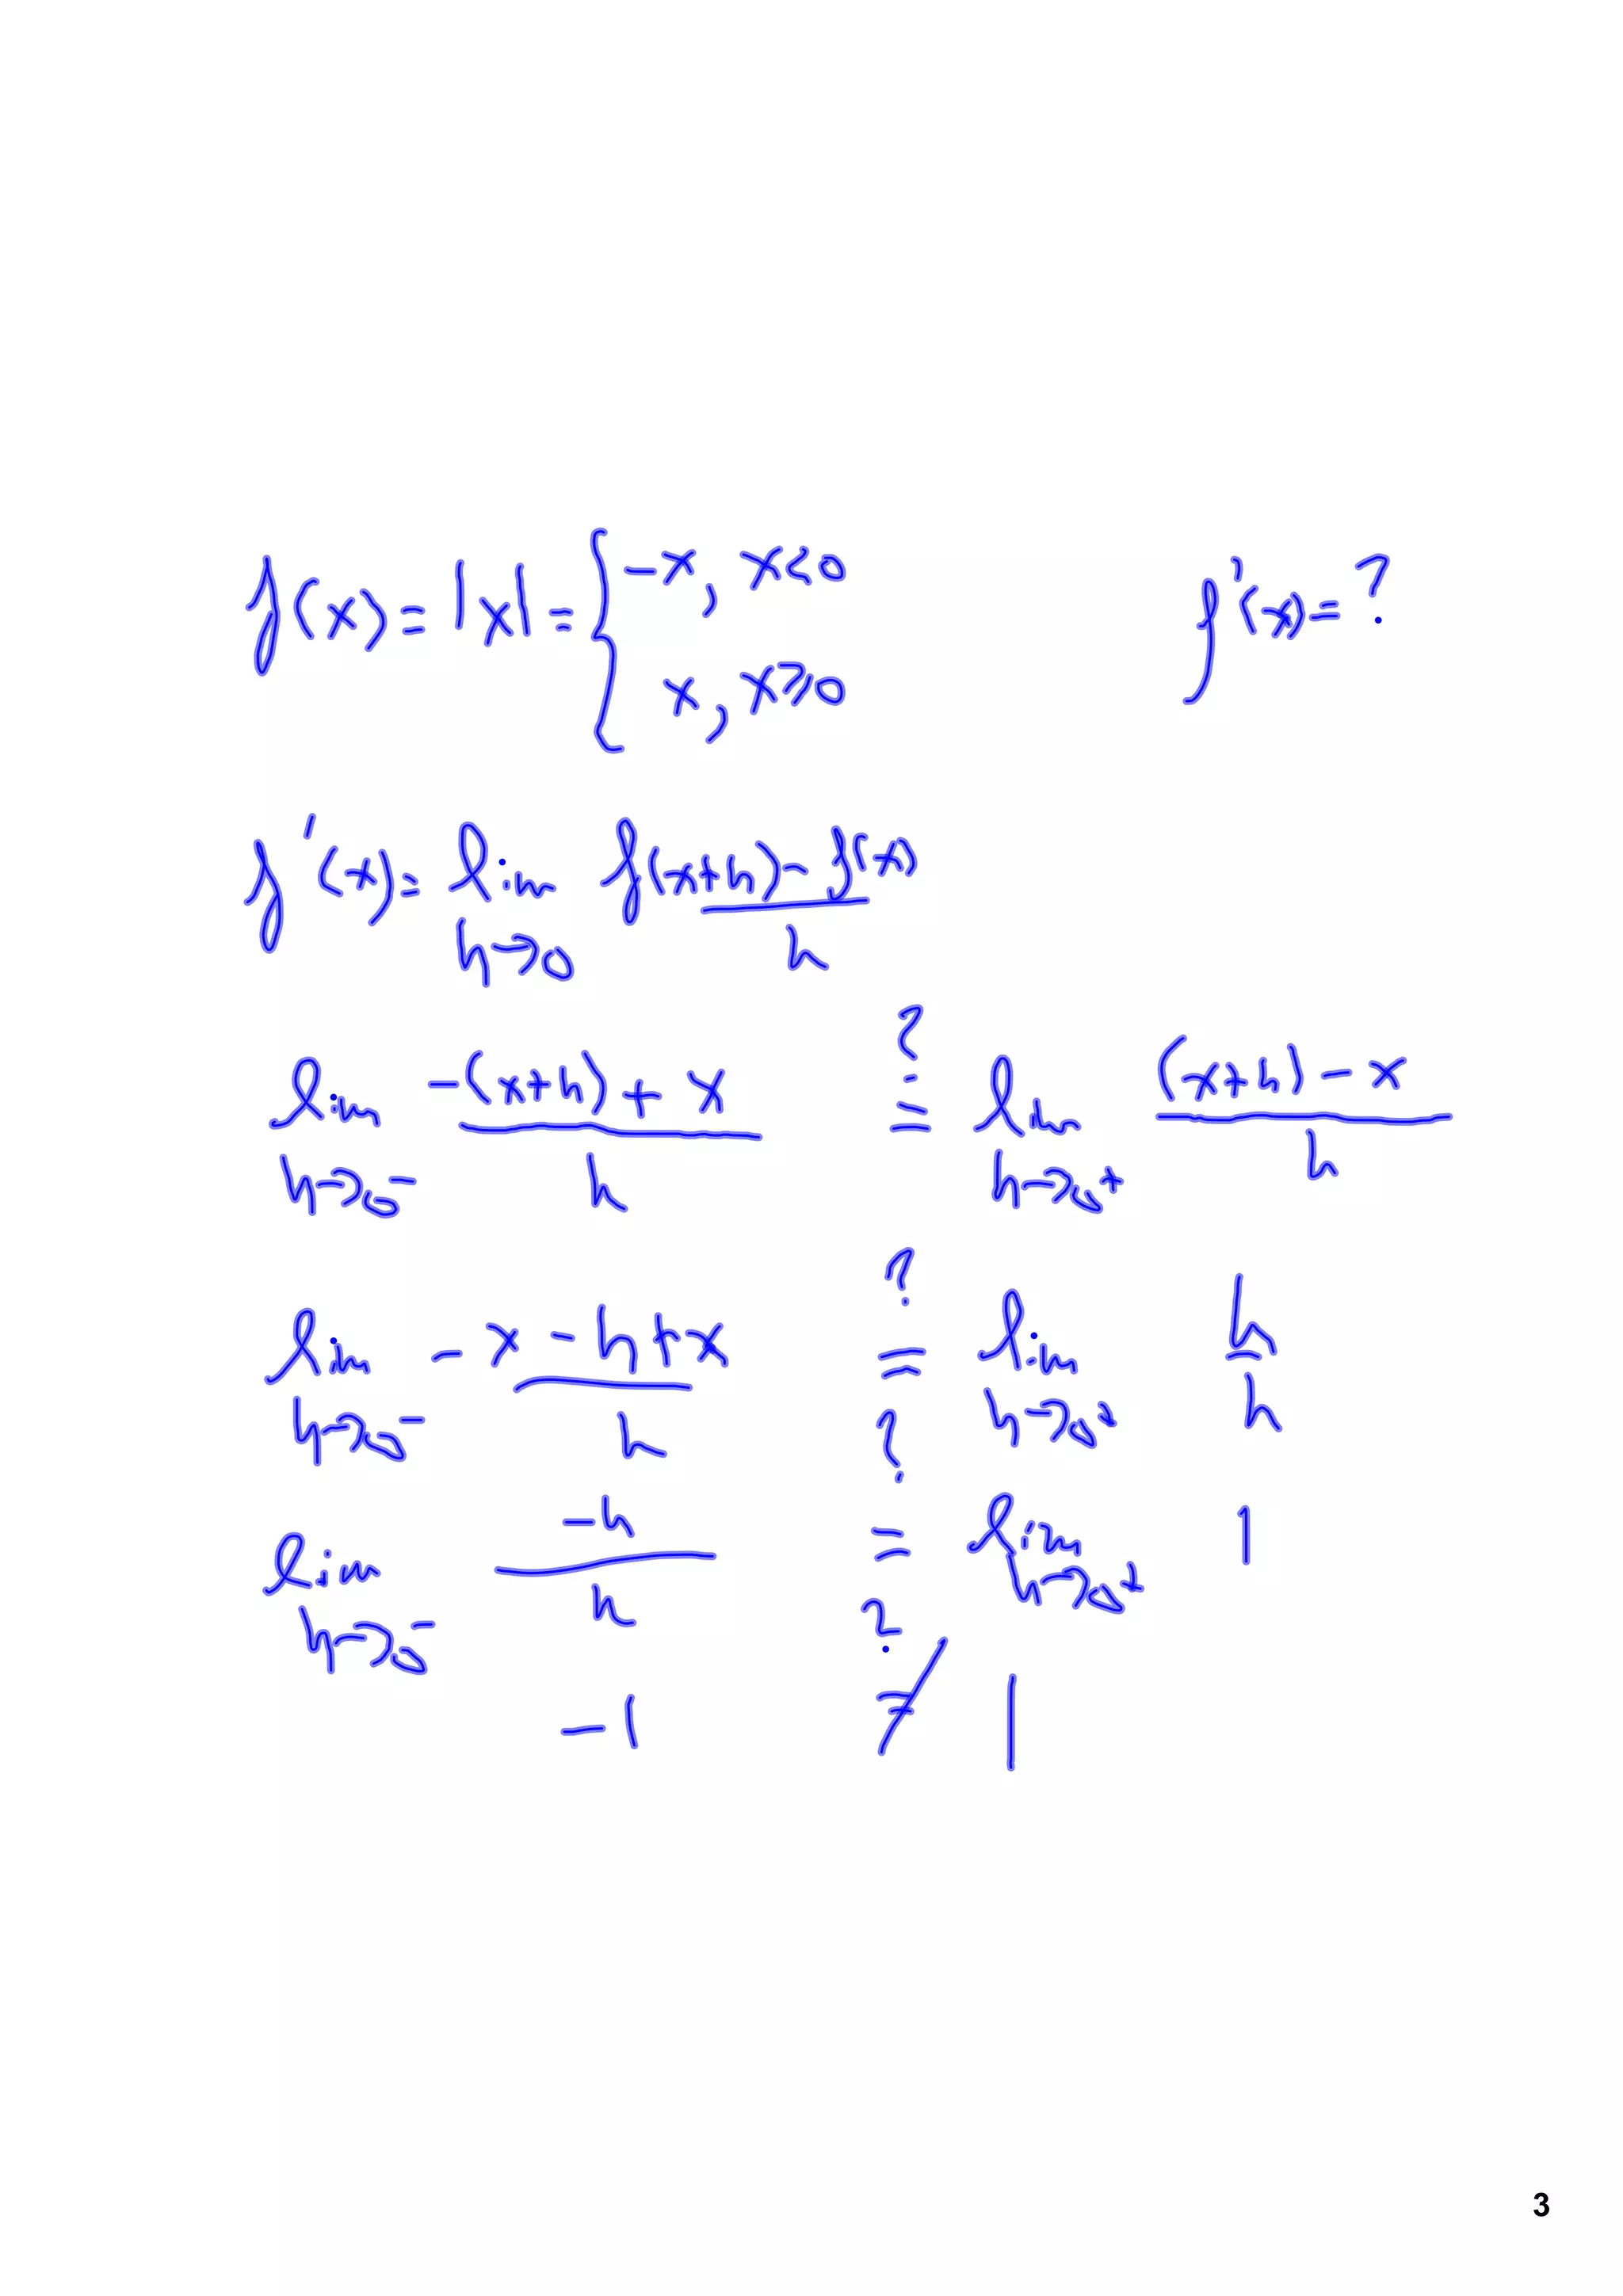 f(x) = |x| = { -x, x<0
x, x≥0
f'(x) = ?
f'(x) = lim h→0 (f(x+h) - f(x)) / h
lim h→0⁻ (-(x+h) + x) / h ?= lim h→0⁺ ((x+h) - x) / h
lim h→0⁻ (-x - h + x) / h ?= lim h→0⁺ h / h
lim h→0⁻ -h / h ?= lim h→0⁺ 1
-1 ?≠ 1
3